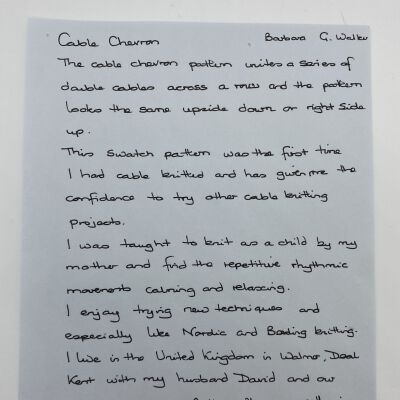 Cable Chevron Barbara G. Walker
The cable chevron pattern unites a series of
double cables across a row and the pattern
looks the same upside down or right side
up.
This swatch pattern was the first time
I had cable knitted and has given me the
confidence to try other cable knitting
projects.
I was taught to knit as a child by my
mother and find the repetitive rhythmic
movements calming and relaxing.
I enjoy trying new techniques and
especially like Nordic and Beading knitting.
I live in the United Kingdom in Walmer, Deal
Kent with my husband David and our